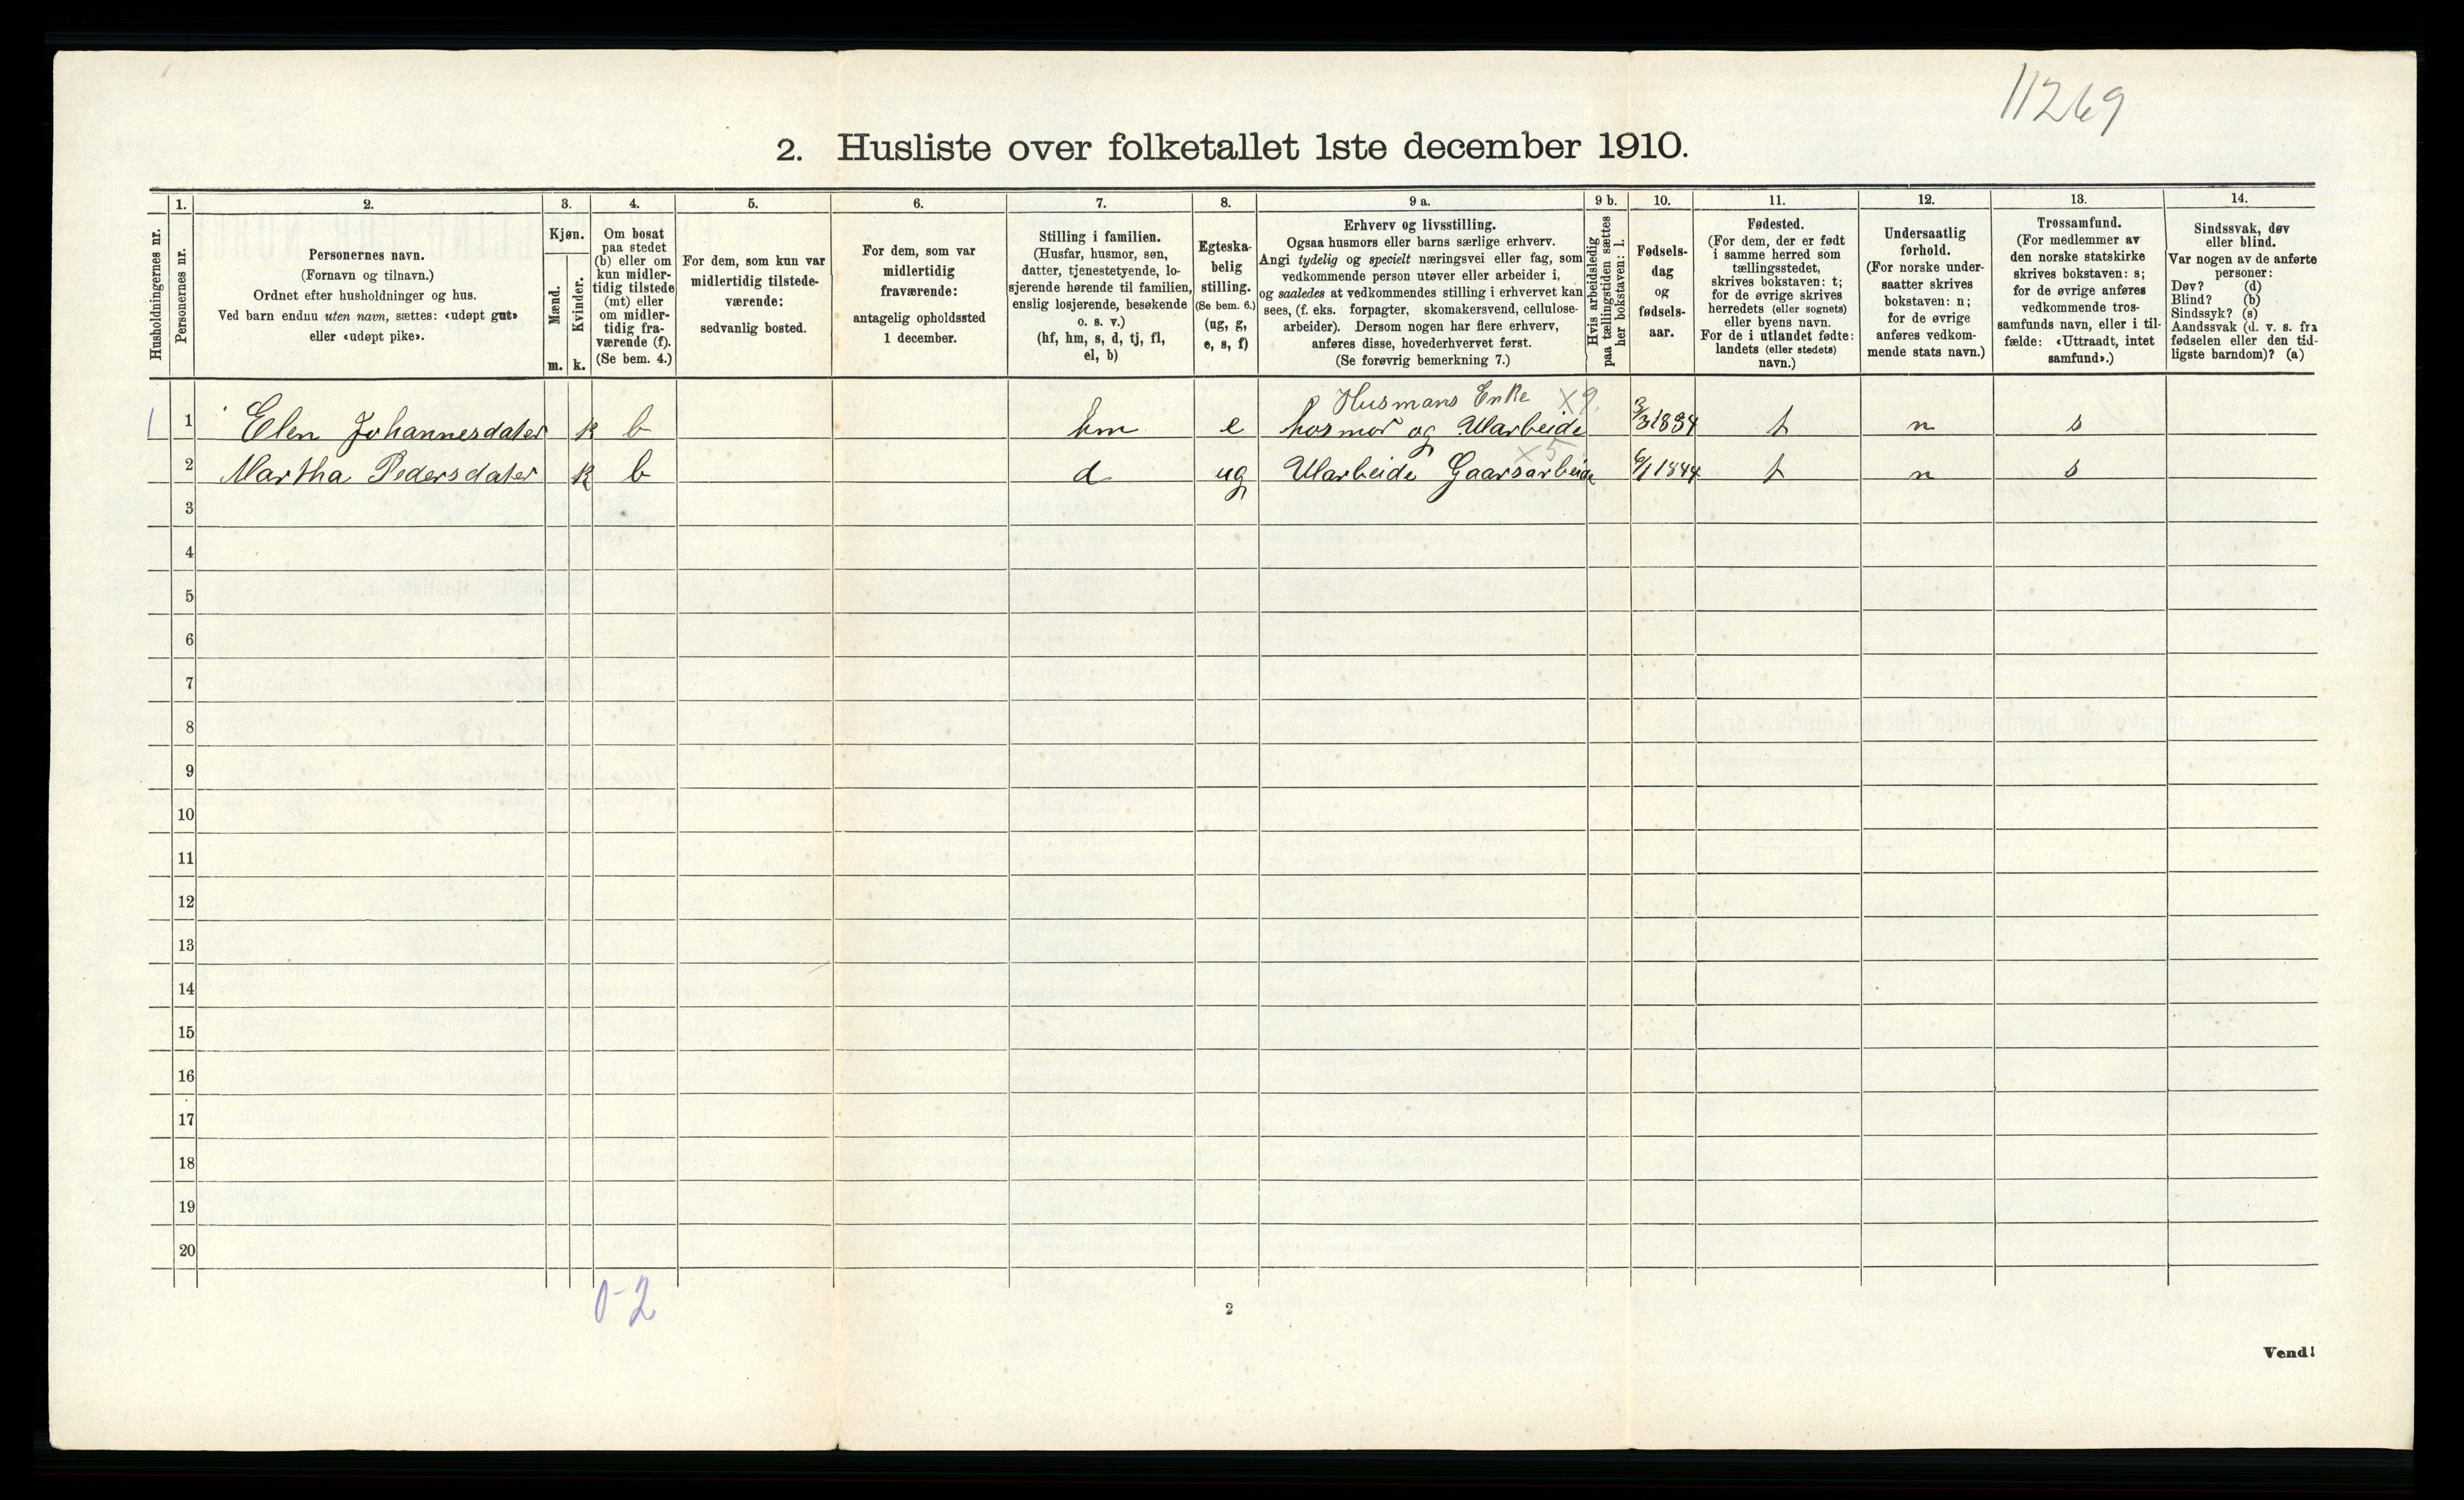 11269
2. Husliste over folketallet 1ste december 1910.
Husholdningernes nr.
1.
Personernes nr.
2.
Personernes navn.
(Fornavn og tilnavn.)
Ordnet efter husholdninger og hus.
Ved barn endnu uten navn, sættes: «udøpt gut»
eller «udøpt pike».
3.
Kjøn.
Mænd.
Kvinder.
m.
k.
4.
Om bosat
paa stedet
(b) eller om
kun midler-
tidig tilstede
(mt) eller
om midler-
tidig fra-
værende (f).
(Se bem. 4.)
5.
For dem, som kun var
midlertidig tilstede-
værende:
sedvanlig bosted.
6.
For dem, som var
midlertidig
fraværende:
antagelig opholdssted
1 december.
7.
Stilling i familien.
(Husfar, husmor, søn,
datter, tjenestetyende, lo-
sjerende hørende til familien,
enslig losjerende, besøkende
o. s. v.)
(hf, hm, s, d, tj, fl,
el, b)
8.
Egteska-
belig
stilling.
(Se bem. 6.)
(ug, g,
e, s, f)
9 a.
Erhverv og livsstilling.
Ogsaa husmors eller barns særlige erhverv.
Angi tydelig og specielt næringsvei eller fag, som
vedkommende person utøver eller arbeider i,
og saaledes at vedkommendes stilling i erhvervet kan
sees, (f. eks. forpagter, skomakersvend, cellulose-
arbeider). Dersom nogen har flere erhverv,
anføres disse, hovederhvervet først.
(Se forøvrig bemerkning 7.)
9 b.
Hvis arbeidsledig
paa tællingstiden sættes
her bokstaven: l.
10.
Fødsels-
dag
og
fødsels-
aar.
11.
Fødested.
(For dem, der er født
i samme herred som
tællingsstedet,
skrives bokstaven: t;
for de øvrige skrives
herredets (eller sognets)
eller byens navn.
For de i utlandet fødte:
landets (eller stedets)
navn.)
12.
Undersaatlig
forhold.
(For norske under-
saatter skrives
bokstaven: n;
for de øvrige
anføres vedkom-
mende stats navn.)
13.
Trossamfund.
(For medlemmer av
den norske statskirke
skrives bokstaven: s;
for de øvrige anføres
vedkommende tros-
samfunds navn, eller i til-
fælde: «Uttraadt, intet
samfund».)
14.
Sindssvak, døv
eller blind.
Var nogen av de anførte
personer:
Døv? (d)
Blind? (b)
Sindssyk? (s)
Aandssvak (d. v. s. fra
fødselen eller den tid-
ligste barndom)? (a)
Husmans Enke x9.
1 1 Elen Johannesdater k b hm e hosmor og Uarbeide t n s
x5
2 Martha Pedersdater k b d ug Uarbeide Gaarsarbeide 6/1 1844 t n s
3
4
5
6
7
8
9
10
11
12
13
14
15
16
17
18
19
20
0-2
2
Vend!